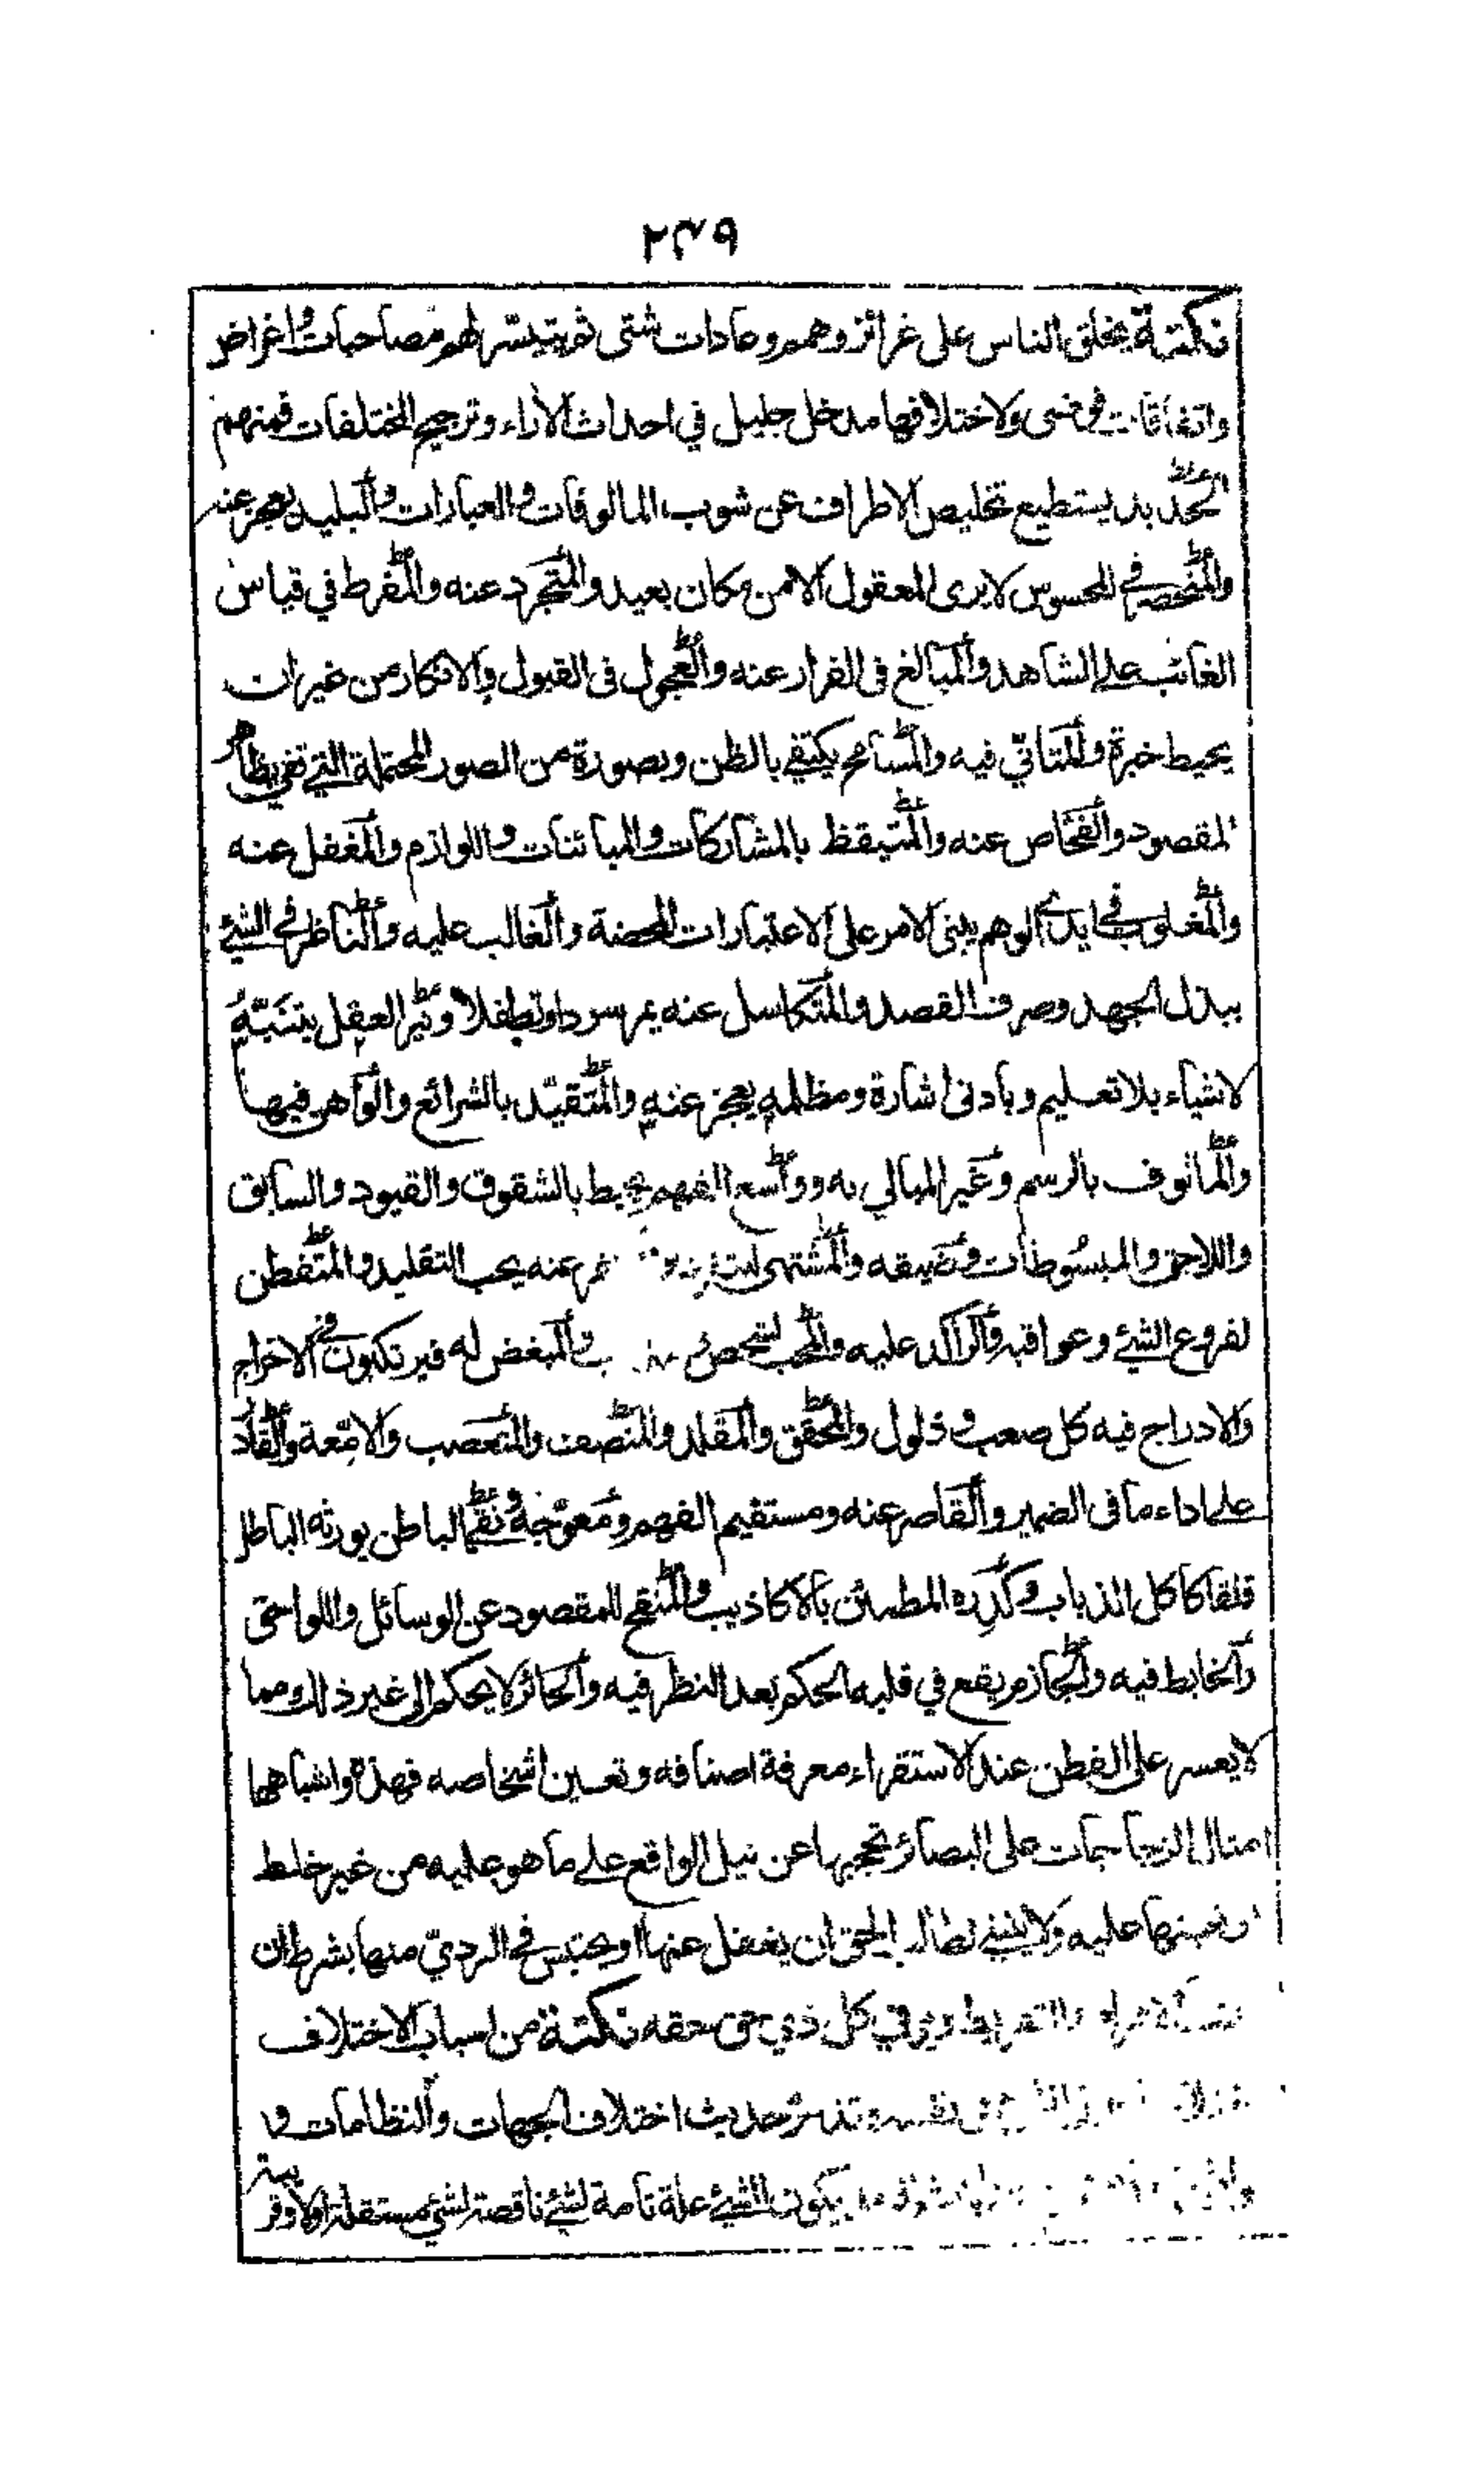 ٢٤٩
نكتة يخلق الناس على غرائز وهمم وعادات شتى ثم يتيسر لهم مصاحبات واغراض
واتفاقات فوضى ولاختلافها مدخل جليل في احداث الآراء وترجيح المختلفات فمنهم
الحديد يستطيع تخليص الاطراف عن شوب المالوفات والعبارات والبليد يعجز عنه
في المحسوس لا يرى المعقول الا من مكان بعيد والمتجرد عنه والمفرط في قياس
الغائب على الشاهد والمبالغ في الفرار عنه والعجول في القبول والانكار من غير ان
يحيط خبرة والمتأني فيه والمسامح يكتفي بالظن وبصورة من الصور المحتملة التي تفي بظاهر
المقصود والفحاص عنه والمتيقظ بالمشاركات والمبائنات واللوازم والمغفل عنه
والمغلوب في ايدي الوهم يبني الامر على الاعتبارات المحضة والغالب عليه والناظر في الشئ
ببذل الجهد وصرف القصد والمتكاسل عنه يمر سردا وتطفلا ونير العقل يتنبه
لاشياء بلا تعليم وبأدنى اشارة ومظلمه يعجز عنه والمتقيد بالشرائع والواهن فيها
والمالوف بالرسم وغير المبالي به وواسع الفهم يحيط بالشقوق والقيود والسابق
واللاحق والمبسوطات وضيقه والمشتهي عنه يحب التقليد والمتفطن
لفروع الشئ وعواقبه والراكد عليه والمحب لشخص والمبغض له فيرتكبون في الاخراج
والادراج فيه كل صعب وذلول والمحقق والمقلد والمنصف والمتعصب والامعة والقادر
على اداء ما في الضمير والقاصر عنه ومستقيم الفهم ومعوجة ونقي الباطن يورثه الباطل
قلقا كاكل الذباب وكدره المطمئن بالاكاذيب والمنقح للمقصود عن الوسائل واللواحق
والخابط فيه والجازم يقع في قلبه الحكم بعد النظر فيه والحائر لا يحكم الى غير ذلك ومما
لا يعسر على الفطن عند الاستقراء معرفة اصنافه وتعيين اشخاصه فهذه واشباهها
امثال الزجاجات على البصائر تحجبها عن نيل الواقع على ما هو عليه من غير خلط
عليه ولا ينبغي لطالب الحق ان يغفل عنها او يحتبس في الردي منها بشرط ان
في كل ذي حق حقه نكتة من اسباب الاختلاف
حديث اختلاف الجهات والنظامات و
يكون الشئ علة تامة لشئ ناقصة لشئ مستقلة